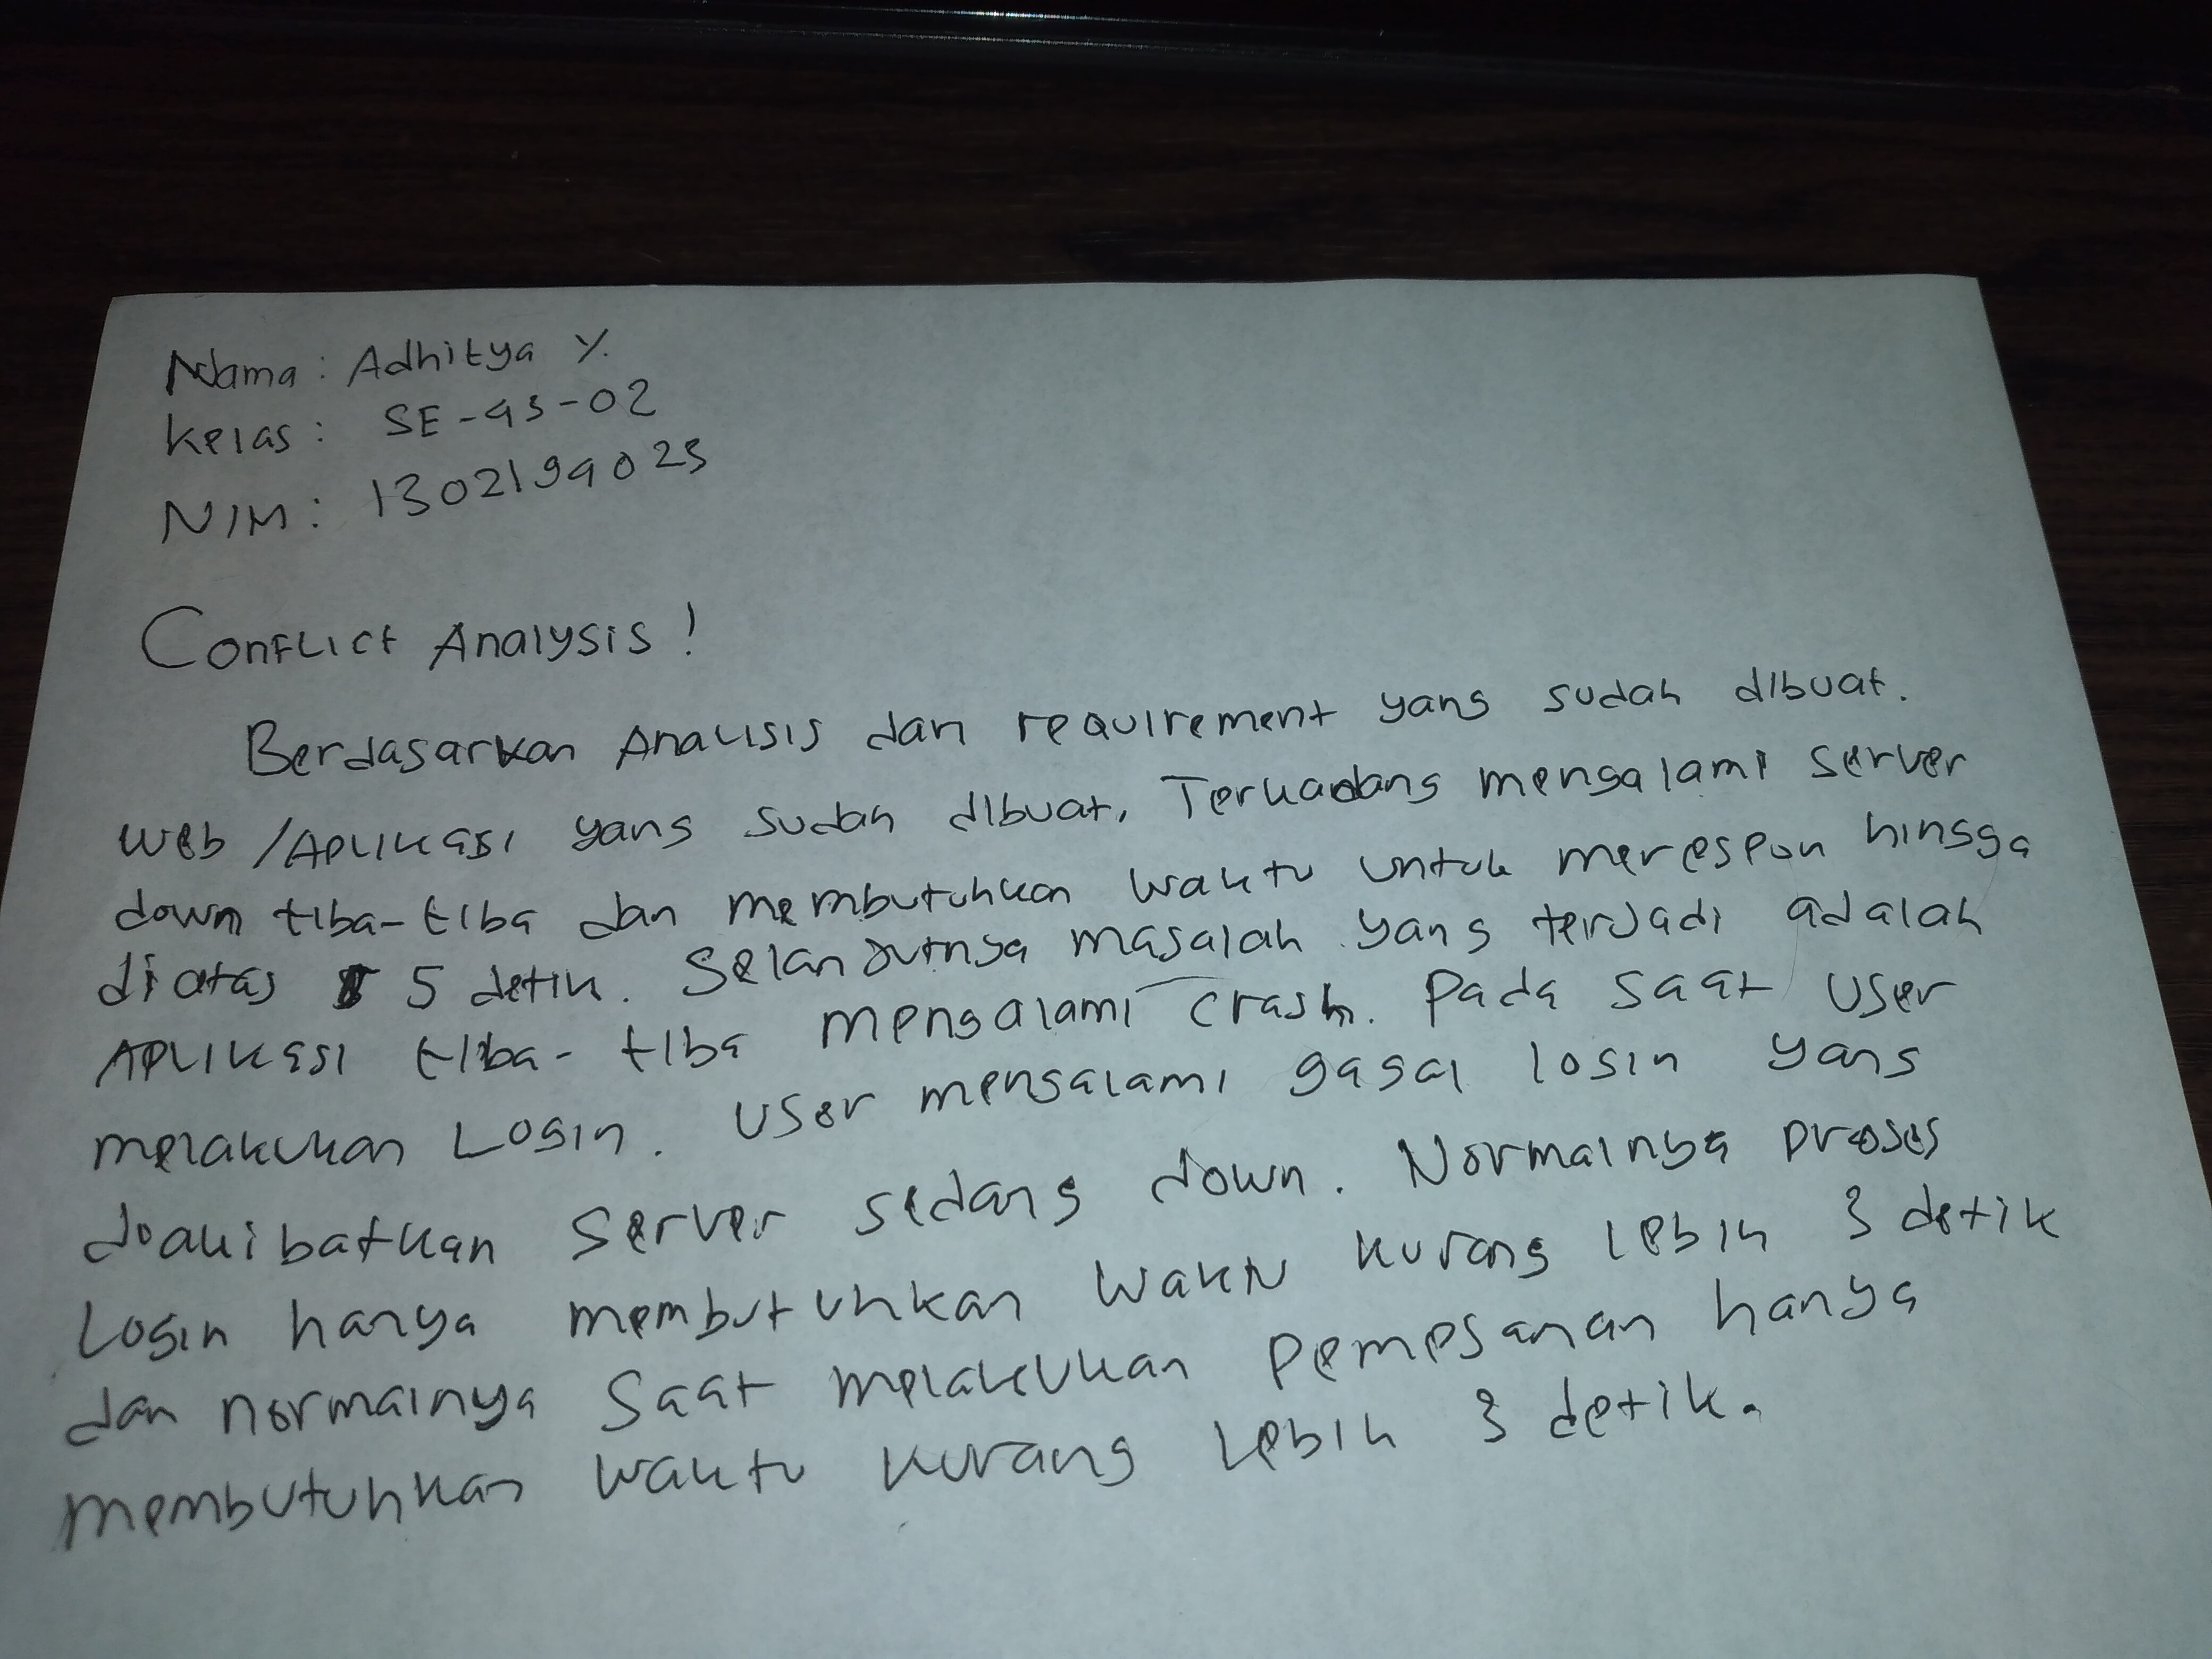 Nama : Adhitya Y.
Kelas : SE-43-02
NIM : 1302194025
Conflict Analysis !
Berdasarkan Analisis dan requirement yang sudah dibuat.
Web /Aplikasi yang sudah dibuat, Terkadang mengalami server
down tiba-tiba dan membutuhkan waktu untuk merespon hingga
di atas 5 detik. Selanjutnya masalah yang terjadi adalah
Aplikasi tiba-tiba mengalami crash. Pada saat user
melakukan Login. User mengalami gagal login yang
diakibatkan server sedang down. Normalnya proses
Login hanya membutuhkan waktu kurang lebih 3 detik
dan normalnya saat melakukan Pemesanan hanya
membutuhkan waktu kurang lebih 3 detik.